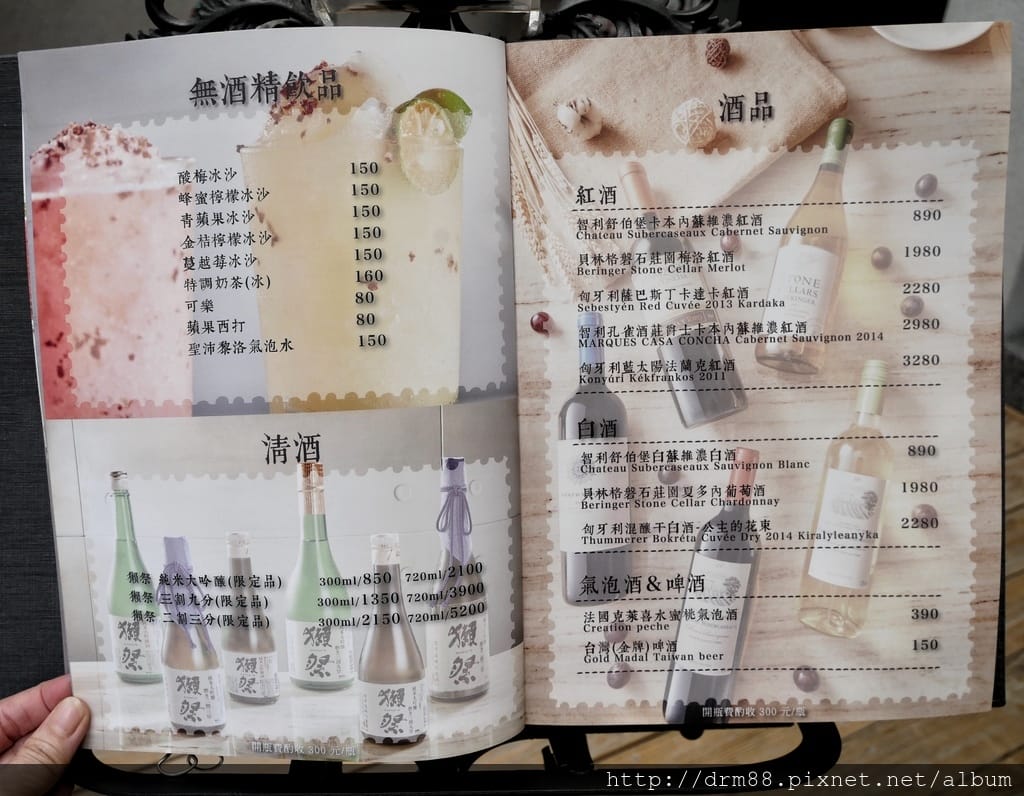 無酒精飲品
酸梅冰沙 150
蜂蜜檸檬冰沙 150
青蘋果冰沙 150
金桔檸檬冰沙 150
蔓越莓冰沙 150
特調奶茶(冰) 160
可樂 80
蘋果西打 80
聖沛黎洛氣泡水 150
清酒
獺祭 純米大吟釀(限定品) 300ml/850 720ml/2100
獺祭 三割九分(限定品) 300ml/1350 720ml/3900
獺祭 二割三分(限定品) 300ml/2150 720ml/5200
獺祭
獺祭
獺祭
獺祭
獺祭
獺祭
開瓶費酌收 300 元/瓶
酒品
紅酒
智利舒伯堡卡本內蘇維濃紅酒 890
Chateau Subercaseaux Cabernet Sauvignon
貝林格磐石莊園梅洛紅酒 1980
Beringer Stone Cellar Merlot
匈牙利薩巴斯丁卡達卡紅酒 2280
Sebestyén Red Cuvée 2013 Kardaka
智利孔雀酒莊爵士卡本內蘇維濃紅酒 2980
MARQUES CASA CONCHA Cabernet Sauvignon 2014
匈牙利藍太陽法蘭克紅酒 3280
Konyári Kékfrankos 2011
白酒
智利舒伯堡白蘇維濃白酒 890
Chateau Subercaseaux Sauvignon Blanc
貝林格磐石莊園夏多內葡萄酒 1980
Beringer Stone Cellar Chardonnay
匈牙利混釀干白酒-公主的花束 2280
Thummerer Bokréta Cuvée Dry 2014 Kiralyleanyka
氣泡酒&啤酒
法國克萊喜水蜜桃氣泡酒 390
Creation peche
台灣(金牌)啤酒 150
Gold Madal Taiwan beer
開瓶費酌收 300 元/瓶
STONE
CELLARS
http://drm88.pixnet.net/album